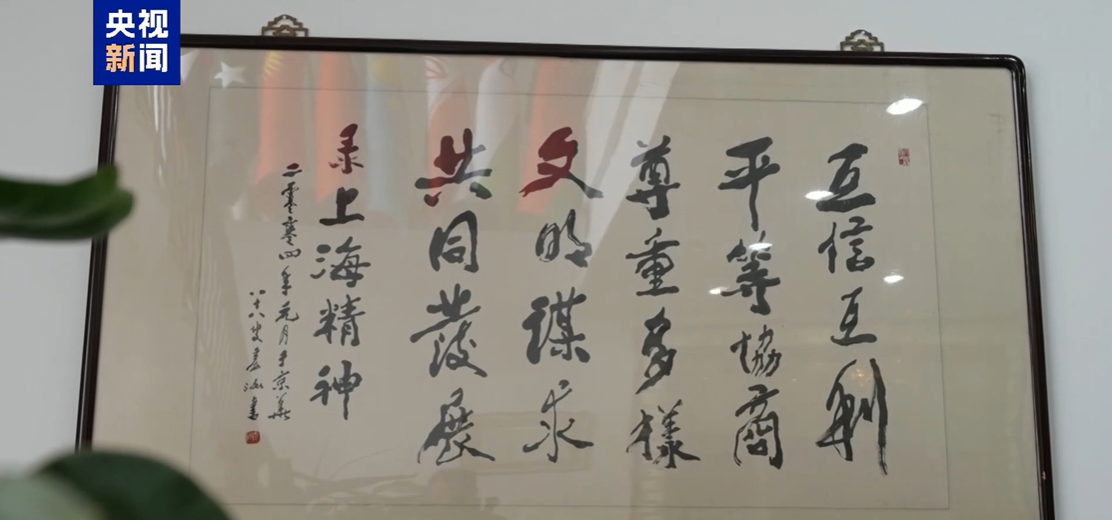 央视
新闻
互信互利
平等協商
尊重多樣
文明謀求
共同發展
录上海精神
二零零四年元月于京華
八十八叟